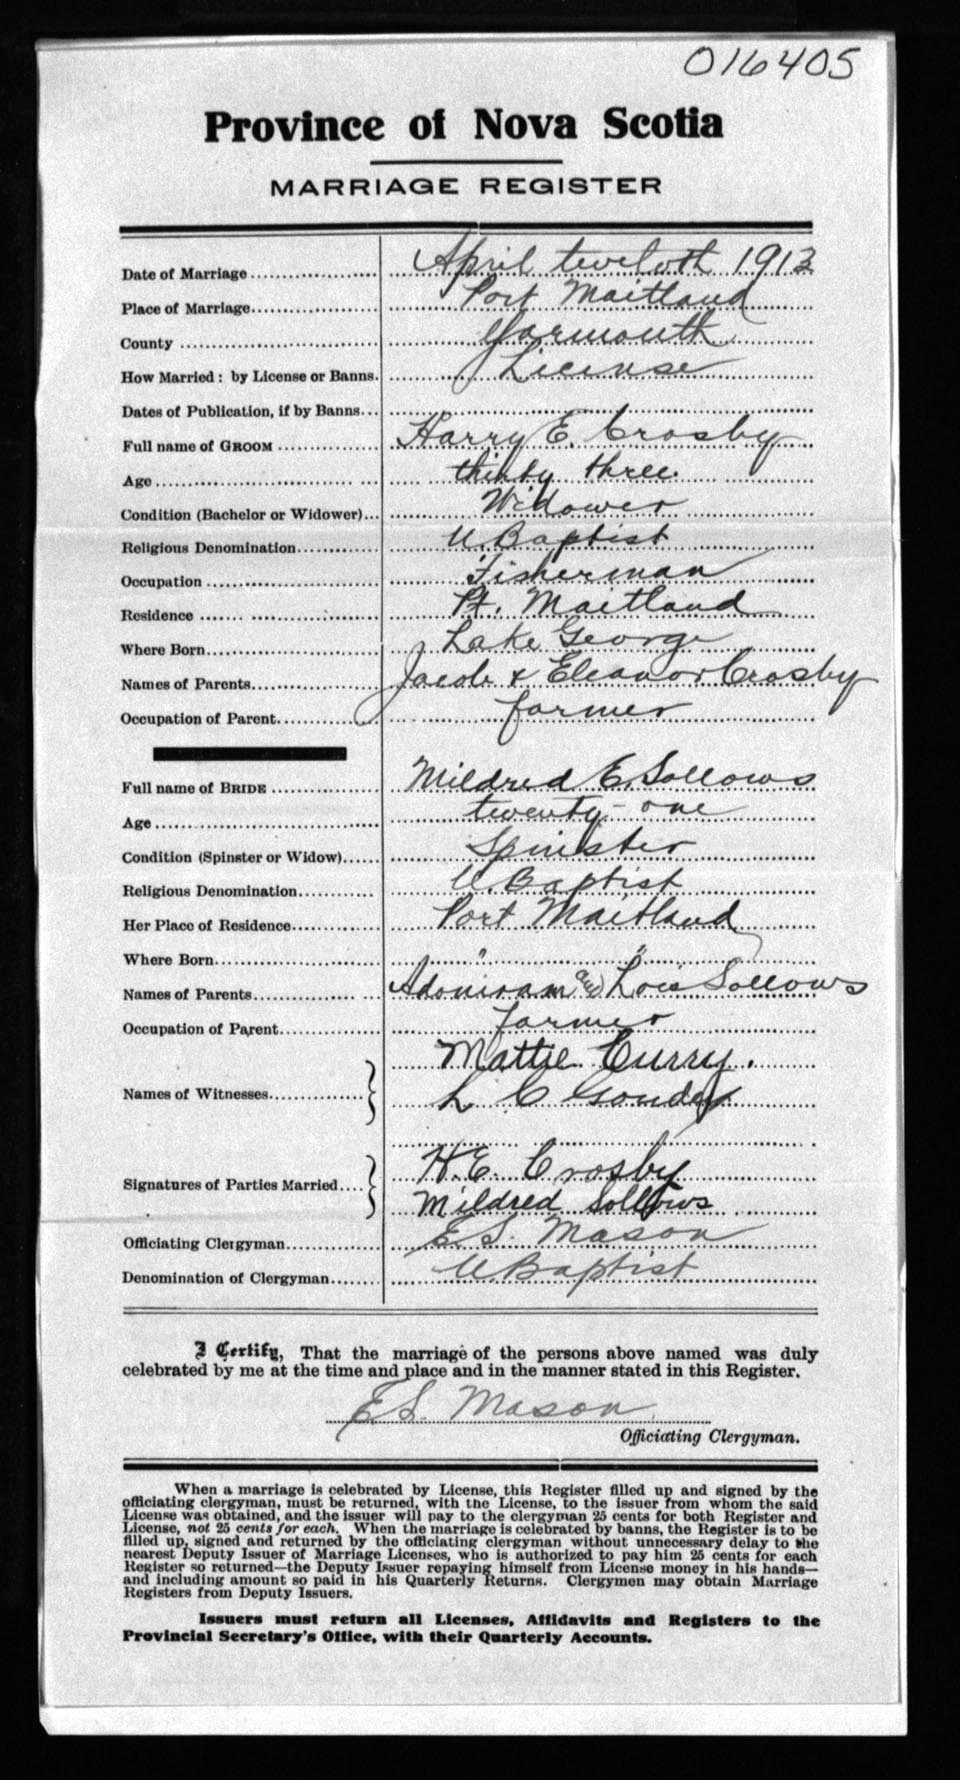 016405
Province of Nova Scotia
MARRIAGE REGISTER
Date of Marriage April twelvth 1913
Place of Marriage Port Maitland
County Yarmouth
How Married: by License or Banns. License
Dates of Publication, if by Banns
Full name of GROOM Harry E. Crosby
Age thirty three
Condition (Bachelor or Widower) Widower
Religious Denomination U. Baptist
Occupation Fisherman
Residence Pt. Maitland
Where Born Lake George
Names of Parents Jacob & Eleanor Crosby
Occupation of Parent farmer
Full name of BRIDE Mildred E. Sollows
Age twenty-one
Condition (Spinster or Widow) Spinister
Religious Denomination U. Baptist
Her Place of Residence Port Maitland
Where Born " "
Names of Parents Adoniram and Lois Sollows
Occupation of Parent farmer
Mattie Curry.
Names of Witnesses L C Goudey
H. E. Crosby
Signatures of Parties Married
Mildred Sollows
Officiating Clergyman E. S. Mason
Denomination of Clergyman U. Baptist
I Certify, That the marriage of the persons above named was duly
celebrated by me at the time and place and in the manner stated in this Register.
E. S. Mason
Officiating Clergyman.
When a marriage is celebrated by License, this Register filled up and signed by the
officiating clergyman, must be returned, with the License, to the issuer from whom the said
License was obtained, and the issuer will pay to the clergyman 25 cents for both Register and
License, not 25 cents for each. When the marriage is celebrated by banns, the Register is to be
filled up, signed and returned by the officiating clergyman without unnecessary delay to the
nearest Deputy Issuer of Marriage Licenses, who is authorized to pay him 25 cents for each
Register so returned—the Deputy Issuer repaying himself from License money in his hands—
and including amount so paid in his Quarterly Returns. Clergymen may obtain Marriage
Registers from Deputy Issuers.
Issuers must return all Licenses, Affidavits and Registers to the
Provincial Secretary's Office, with their Quarterly Accounts.